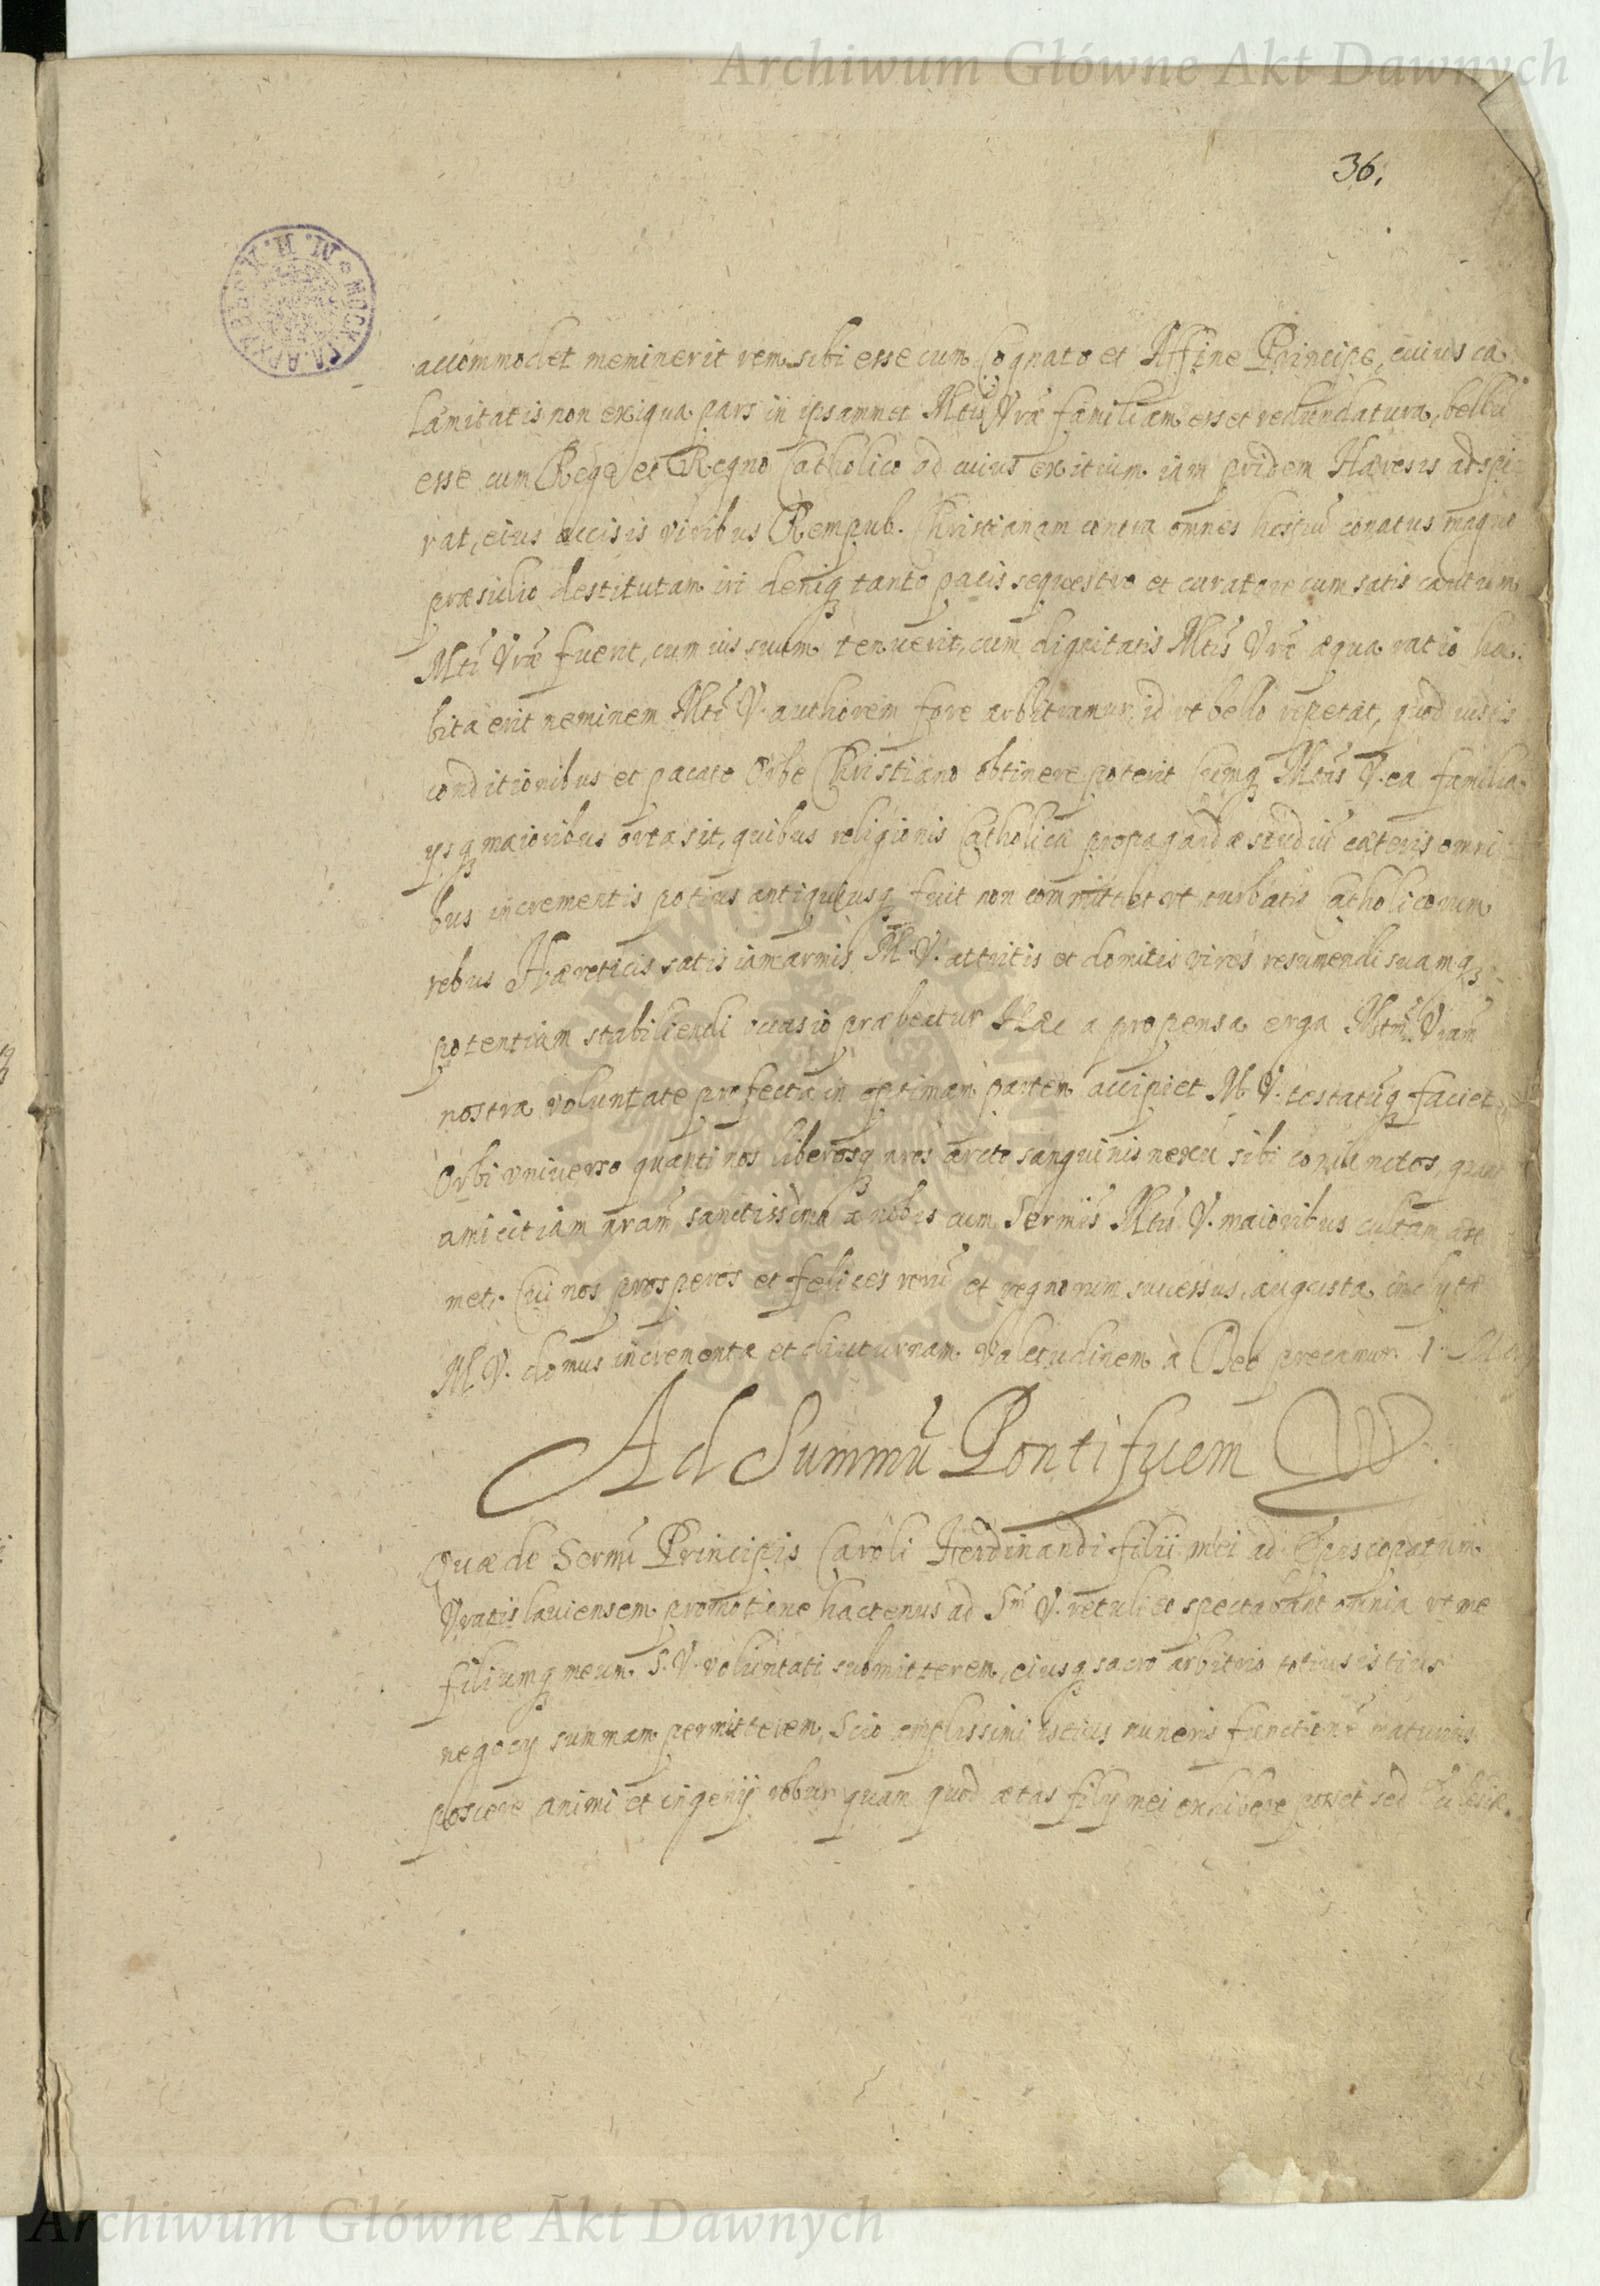 Archiwum Główne Akt Dawnych
36.
accommodet meminerit rem sibi esse cum Cognato et Affine Principe, cuius ca
lamitatis non exigua pars in ipsammet Mtis Vræ familiam esset redundatura, bellū
esse cum Rege et Regno Catholico ad cuius exitium iam pridem Hæresis adspi
rat, eius accisis viribus Rempub. Christianam contra omnes hostiū conatus magno
præsidio destitutam iri deniq tanto pacis sequestro et curatore cum satis cautum
Mti Vræ fuerit, cum ius suum tenuerit, cum dignitatis Mtis Vræ æqua ratio ha
bita erit neminem Mti V. authorem fore arbitramur, id vt bello repetat, quod iustis
conditionibus et pacato Orbe Christiano obtinere poterit Cumq Mtas V. ea familia
ysq maioribus orta sit, quibus religionis Catholicæ propagandæ studiū cæteris omni
bus incrementis potius antiquiusq fuit non committet vt turbatis Catholicorum
rebus Hæreticis satis iam armis M. V. attritis et domitis vires resumendi suamq
potentiam stabiliendi occasio præbeatur Hæc a propensa erga Mtm Vram
nostra voluntate profecta in optimam partem accipiet M. V. testatūq faciet
Orbi vniverso quanti nos liberosq nros arcto sanguinis nexu sibi coniunctos,
amicitiam nram sanctissimè a nobis cum Sermis Mtis V. maioribus cultam
met. Cui nos prosperos et felices rerū et regnorum successus, augusta inclytæ
M. V. domus incrementa et diuturnam valetudinem à Deo precamur. 1.
Ad Summū Pontificem
Quæ de Sermi Principis Caroli Ferdinandi filii mei ad Episcopatum
Vratislaviensem promotione hactenus ad Sm V. retuli eo spectabant omnia vt me
filiumq meum S. V. voluntati submitterem, eiusq sacro arbitrio totius istius
negocy summam permitterem, Scio amplissimi istius muneris functionē maturius
poscere animi et ingenij robur quam quod ætas fily mei exhibere posset sed Ecclesiæ
Archiwum Główne Akt Dawnych